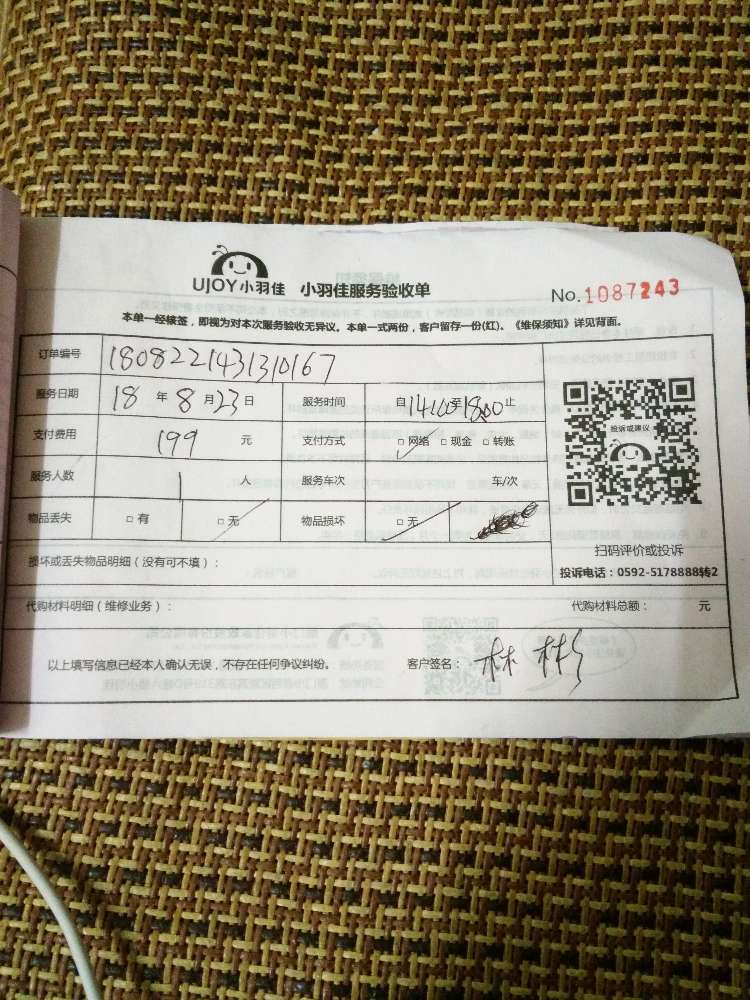 UJOY小羽佳 小羽佳服务验收单
No.1087243
本单一经核签，即视为对本次服务验收无异议。本单一式两份，客户留存一份(红)。《维保须知》详见背面。
订单编号 1808221431310167
服务日期 18 年 8 月 23 日 服务时间 自 14:00 至 18:00 止
支付费用 199 元 支付方式 □ 网络 □ 现金 □ 转账
投诉或建议
服务人数 1 人 服务车次 车/次
物品丢失 □ 有 □ 无 物品损坏 □ 无
扫码评价或投诉
损坏或丢失物品明细（没有可不填）：
投诉电话：0592-5178888转2
代购材料明细（维修业务）： 代购材料总额： 元
以上填写信息已经本人确认无误，不存在任何争议纠纷。 客户签名： 林彬